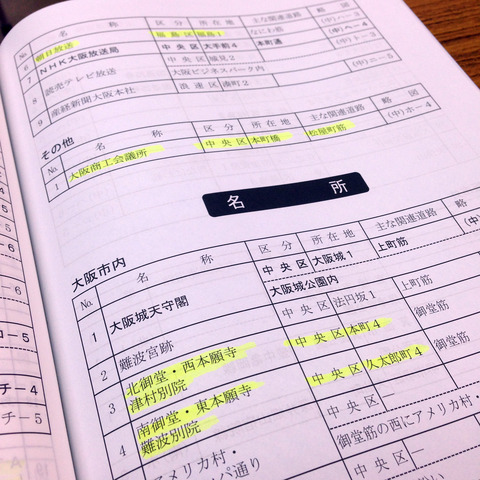 No. 名 称 区 分 所 在 地 主な関連道路 略 図
朝日放送 福 島 区 福島1 なにわ筋
7 NHK大阪放送局 中 央 区 大手前4 本町通
8 読売テレビ放送 中 央 区 城見2
大阪ビジネスパーク内
9 産経新聞大阪本社 浪 速 区 湊町2
その他
No. 名 称 区 分 所 在 地 主な関連道路 略 図
1 大阪商工会議所 中 央 区 本町橋 松屋町筋 (中)ホー4
名 所
大阪市内
No. 名 称 区 分 所 在 地 主な関連道路 略
1 大阪城天守閣 中 央 区 大阪城1 上町筋 (中)
大阪城公園内
2 難波宮跡 中 央 区 法円坂1 上町筋
3 北御堂・西本願寺 中 央 区 本町4 御堂筋
津村別院
4 南御堂・東本願寺 中 央 区 久太郎町4 御堂筋
難波別院
アメリカ村・ 中 央 区 ―
御堂筋の西にアメリカ村・
パ通り 中 央 区 ―